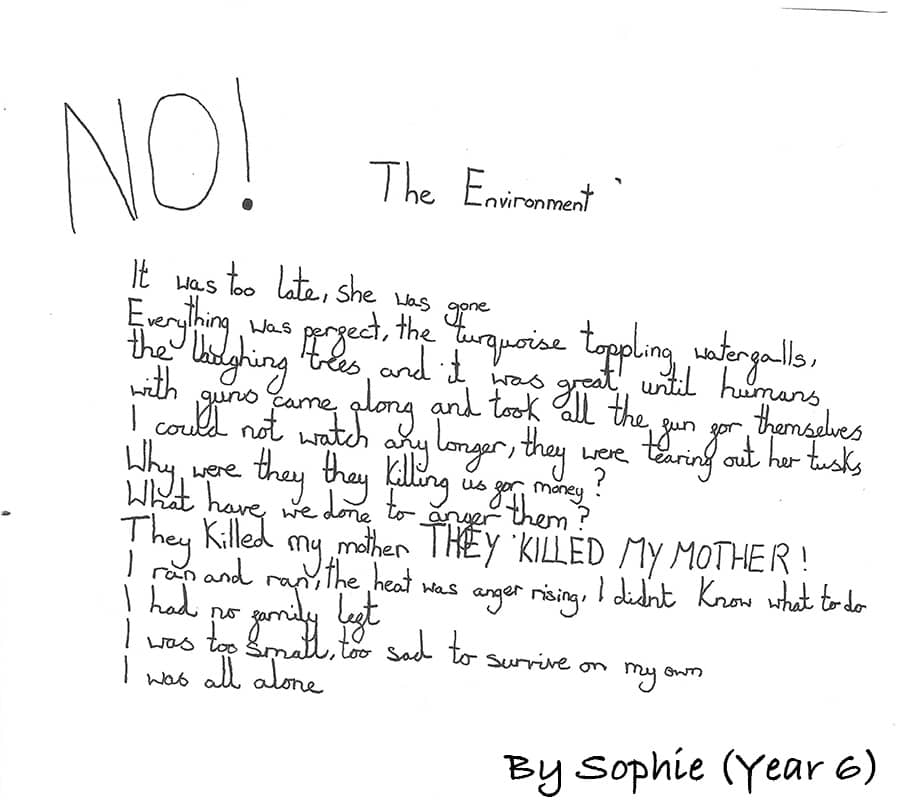 NO!
The Environment
It was too late, she was gone
Everything was perfect, the turquoise toppling waterfalls,
the laughing trees and it was great until humans
with guns came along and took all the fun for themselves
I could not watch any longer, they were tearing out her tusks
Why were they they killing us for money?
What have we done to anger them?
They killed my mother THEY KILLED MY MOTHER!
I ran and ran, the heat was anger rising, I didnt know what to do
I had no family left
I was too small, too sad to survive on my own
I was all alone
By Sophie (Year 6)